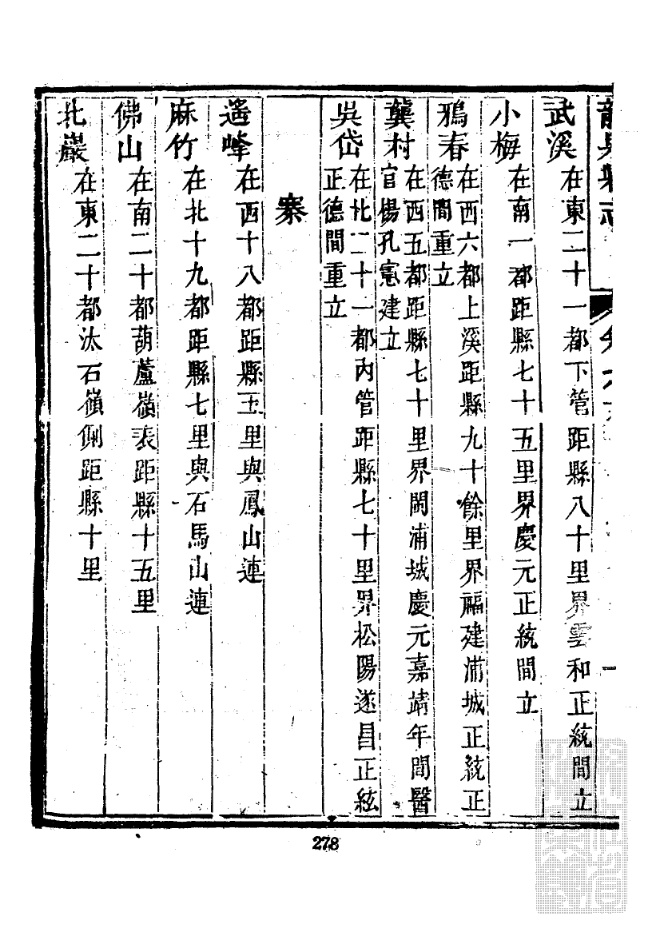 龍泉縣志
武溪 在東二十一都下管距縣八十里界雲和正統間立
小梅 在南一都距縣七十五里界慶元正統間立
鴉春 在西六都上溪距縣九十餘里界福建浦城正統正
德間重立
龔村 在西五都距縣七十里界閩浦城慶元嘉靖年間醫
官楊孔憲建立
吳岱 在北二十一都內管距縣七十里界松陽遂昌正統
正德間重立
寨
遥峰 在西十八都距縣五里與鳳山連
麻竹 在北十九都距縣七里與石馬山連
佛山 在南二十都葫蘆嶺表距縣十五里
北巖 在東二十都汰石嶺側距縣十里
278